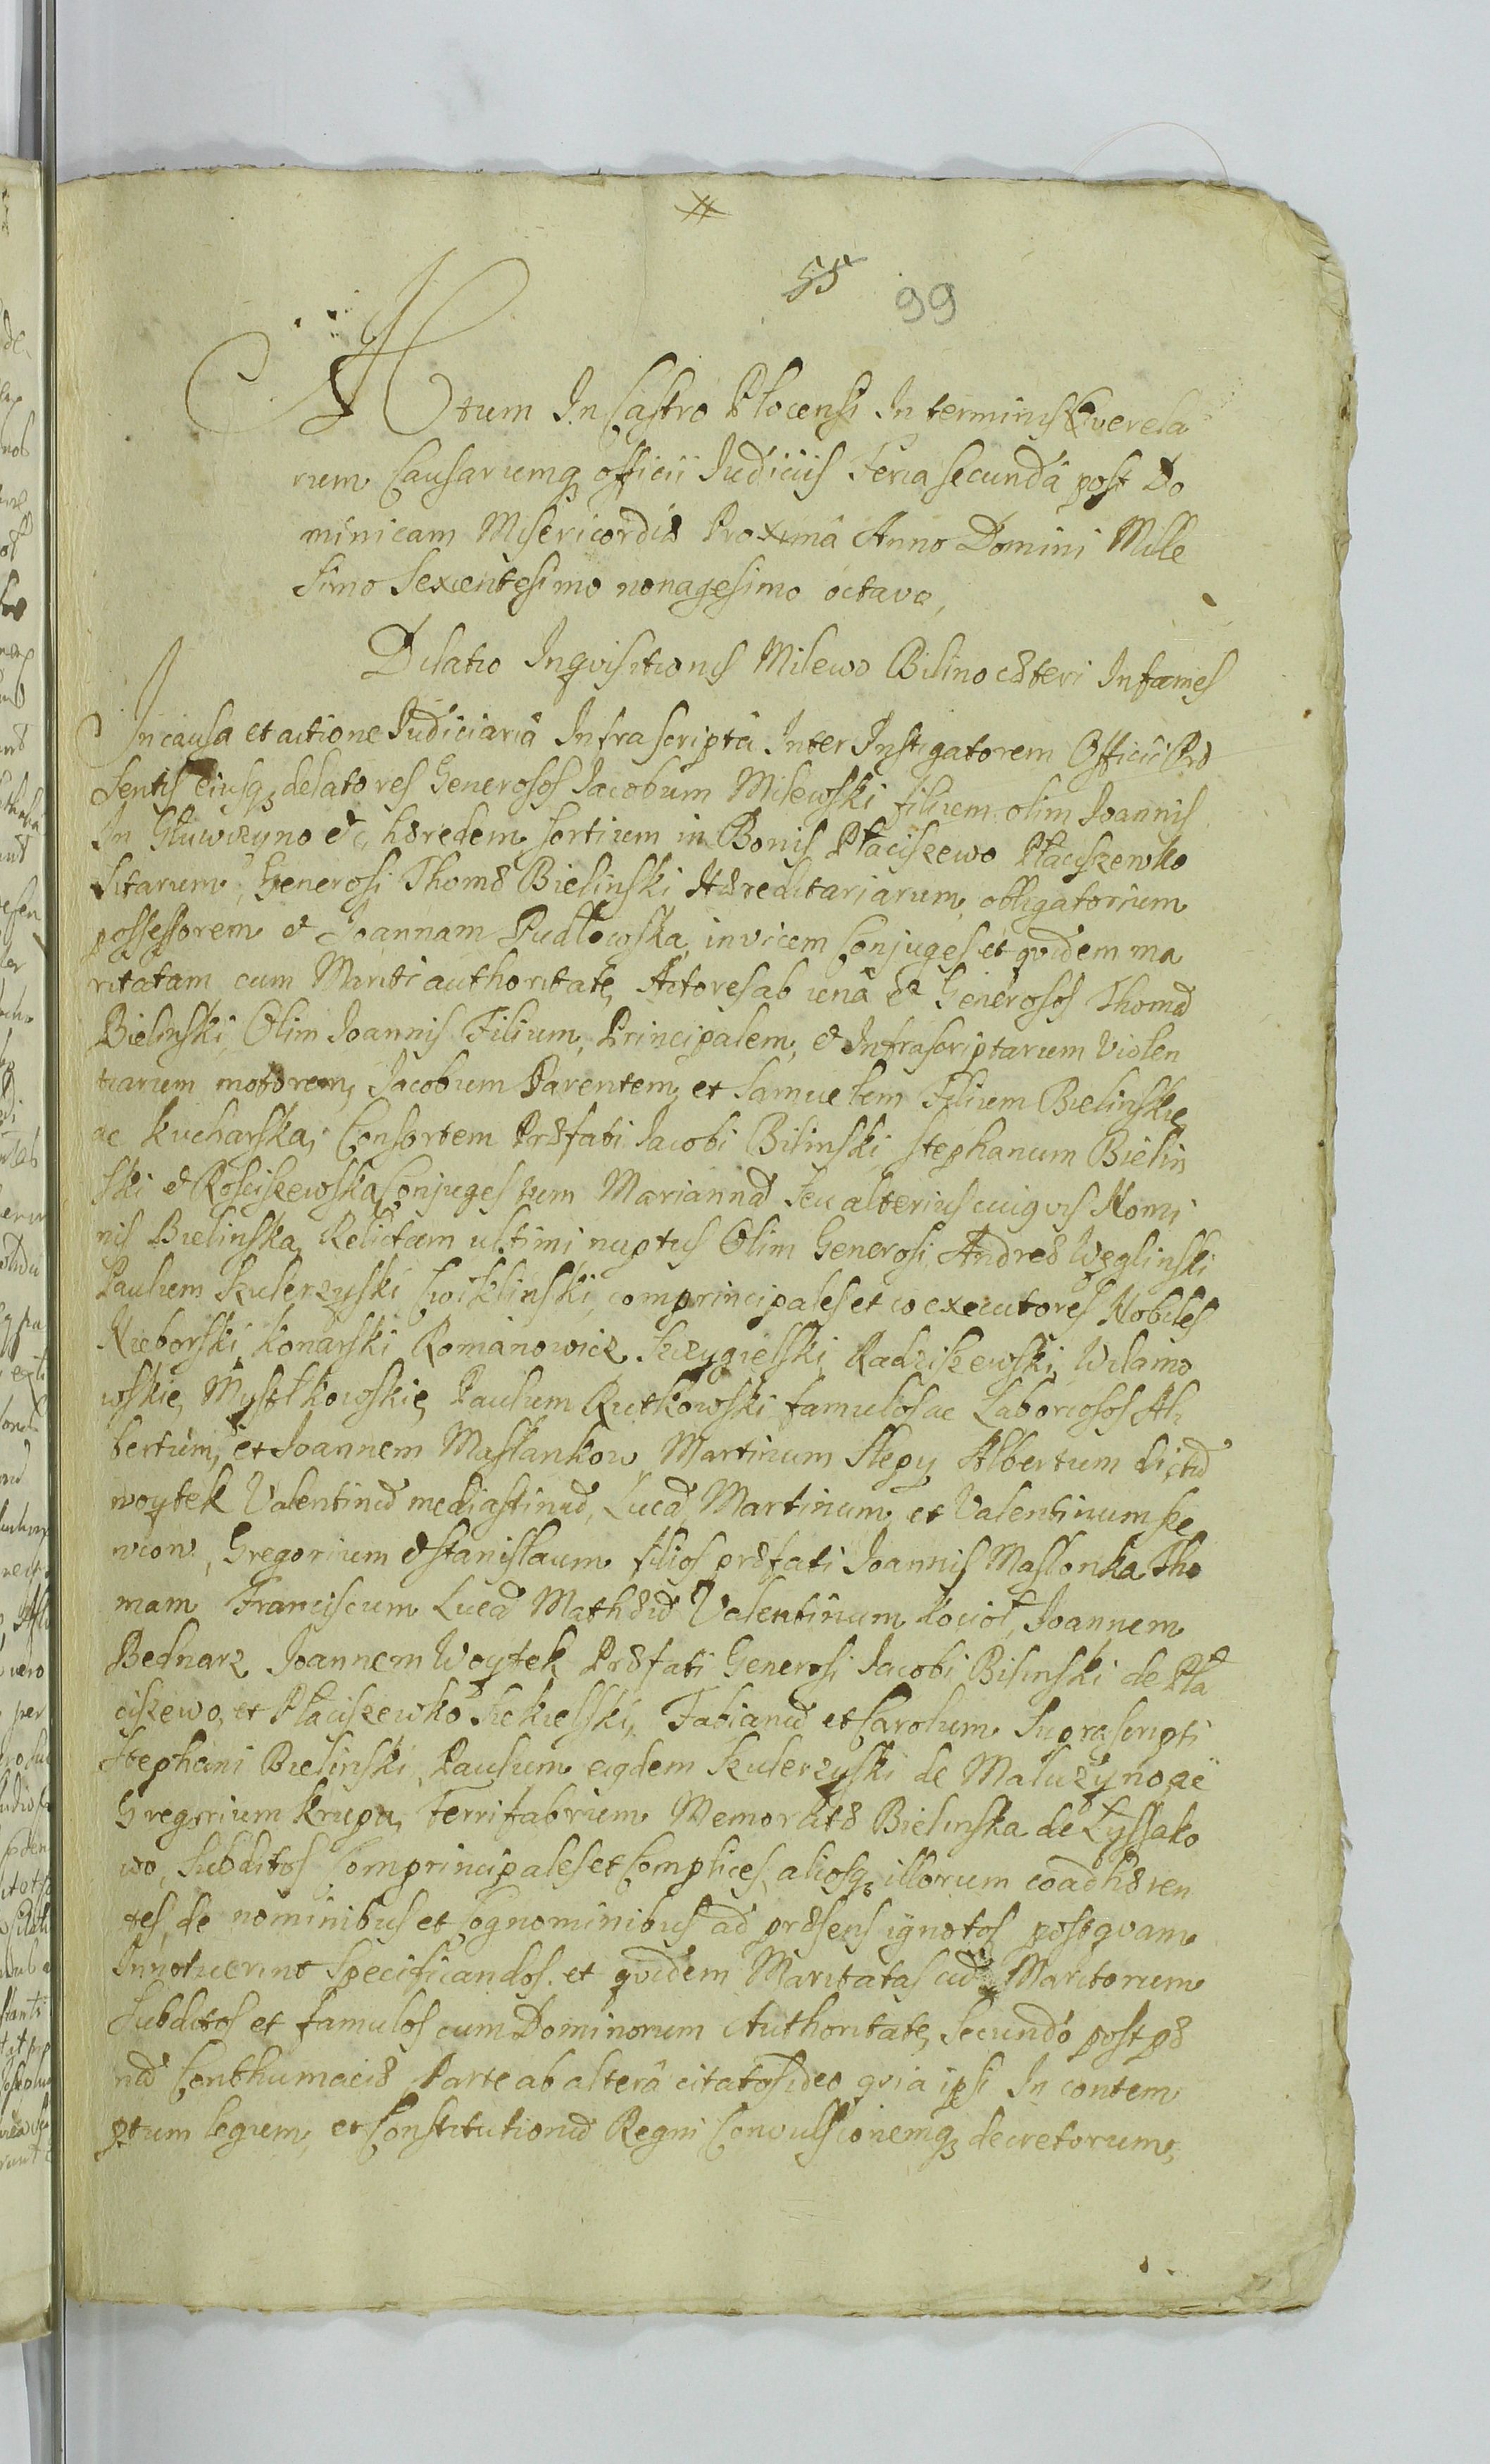 55
99
Actum In Castro Plocensi In terminis Querela
rum Causarumq officii Judiciis Feria secundâ post Do
minicam Misericordiæ Proximâ Anno Domini Mille
simo Sexentesimo nonagesimo octavo,
Dilatio Inqvisitionis Milewo Bilino cæteri Infames
In causa et actione Judiciariâ Infrascriptâ Inter Instigatorem Officii Præ
sentis eiusq, delatores Generosos Jacobum Milewski filium olim Joannis
In Gluwczyno &c, hæredem sortium in Bonis Płaciszewo Płaciszewko
sitarum, Generosi Thomæ Bielinski Hæreditariarum, obligatorium
possessorem & Joannam Pudłowska, invicem Conjuges et qvidem ma
ritatam cum Mariti authoritate, Actores ab unâ & Generosos Thomā
Bielinski, Olim Joannis Filium, Principalem, & Infrascriptarum Violen
tiarum motorem, Jacobum Parentem, et Samuelem Filium Bielinskie,
ac Kucharska, Consortem Præfati Jacobi Bilinski Stephanum Bielin
ski & Rosciszewska Conjuges tum Mariannā seu alterius cuiqvis Nomi
nis Bielinska, Relictam ultimi nuptus Olim Generosi Andreæ Węglinski
Paulum Kulerzyski Cwiklinski, comprincipales et coexecutores Nobiles
Nieborski, Konarski Romanowicz, Radziszewski, Wilamo
wskie, Mystkowskie, Paulum Rutkowski famulos ac Laboriosos Al
bertum, et Joannem Maslankow Martinum Slepy Albertum dictū
woytek Valentinū mediastinū, Lucā, Martinum et Valentinum
Gregorium & Stanislaum filios præfati Joannis Maslonka Tho
mam Franciscum Lucā Mathæū Valentinum Kocioł, Joannem
Bednarz Joannem Woytek Præfati Generosi Jacobi Bilinski de Pła
ciszewo, et Płaciszewko Fabianū et Carolum Suprascripti
Stephani Bielinski, Paulum eiqdem Kulerzyski de Maluzyno ac
Gregorium Krupa, Ferrifabrum Memoratæ Bielinska de Lyssako
wo, Subditos Comprincipales et Complices, aliosq, illorum coadhæren
tes, de nominibus et cognominibus ad præsens ignotos postqvam
Innotuerint Specificandos. et qvidem Maritatas cū Maritorum
Subditos et famulos cum Dominorum Authoritate, Secundo post pæ
nā Conthumaciæ Parte ab alterâ citatos ideo qvia ipsi In contem
ptum legum, et Constitutionū Regni Convulsionemq, decretorum,